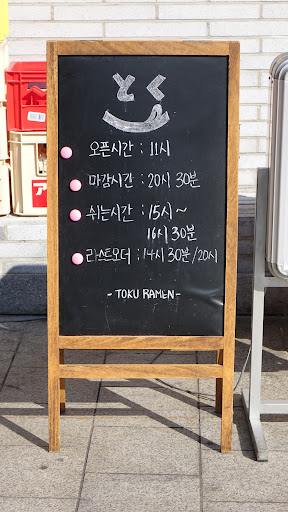 とく
오픈시간 : 11시
마감시간 : 20시 30분
쉬는시간 : 15시 ~
16시 30분
라스트오더 : 14시 30분 / 20시
- TOKU RAMEN -